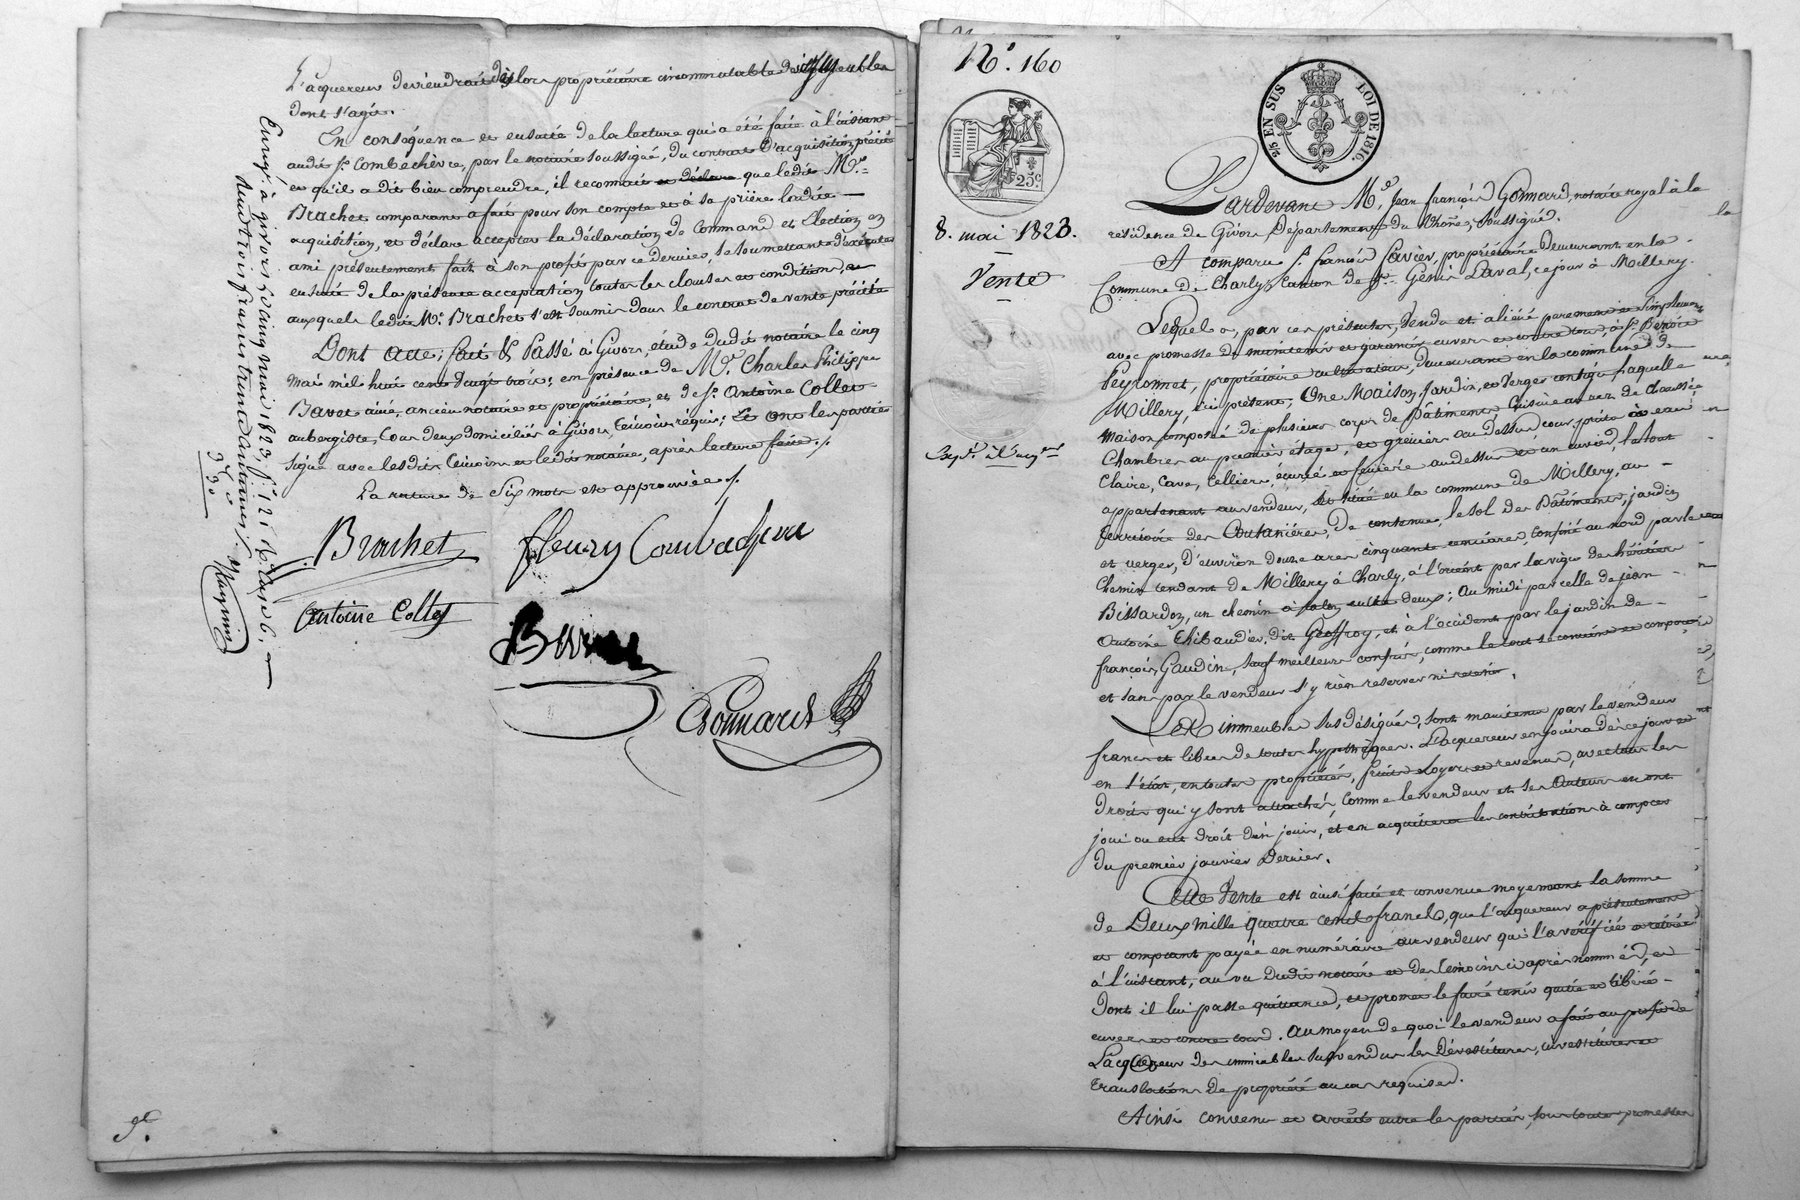 L'acquereur deviendrait dès lors propriétaire incommutable des immeubles
dont s'agit.
En conséquence et ensuite de la lecture qui a été faite à l'instant
audit Sr. Combechèvre, par le notaire soussigné, du contrat d'acquisition précité
et qu'il a dit bien comprendre, il reconnait et déclare que ledit Me.
Brachet comparant a fait pour son compte et à sa prière ladite
acquisition, et déclare accepter la déclaration de Command et Élection en
ami présentement fait à son profit par ce dernier, se soumettant d'exécuter
ensuite de la présente acceptation toutes les clauses et conditions, et
auxquels ledit Me. Brachet s'est soumis dans le contrat de vente précité
Dont acte; fait & Passé à Givors, étude dudit notaire le cinq
mai mil huit cent vingt trois; en présence de Me. Charles Philippe
Bavet ainé, ancien notaire et propriétaire, et de Sr. Antoine Collet
aubergiste, tous deux domiciliés à Givors, témoins requis; Et ont les parties
signé avec lesdits témoins et ledit notaire, après lecture faite./.
La rature de Six mots est approuvée./.
Brachet
fleury Combechevre
Antoine Collet
Gonnard
Enregé. à givors le cinq mai 1823. fo. 121
deux francs trente centimes
No. 160
25 EN SUS
LOI DE 1816.
25c.
8. mai 1823.
Vente
Pardevant Me. Jean françois Gonnard, notaire royal à la
résidence de Givors Département du Rhône, soussigné.
A comparu Sr. françois Pavier, propriétaire Demeurant en la
Commune de Charly, Canton de St. Genis Laval, ce jour à Millery.
Lequel a, par ces présentes, Vendu et aliéné purement et simplement
avec promesse de maintenir et garantir envers et contre tous, à Sr. Benoit
Peyronnet, propriétaire cultivateur, demeurant en la commune de
Millery, ici présent, Une Maison, Jardin, et Verger contigu, laquelle
maison composée de plusieurs corps de Bâtiments, Cuisine au rez de chaussée
Chambres au premier étage, et greniers au dessus, cour, puits à eau
Claire, Cave, Cellier, écurie et fenière au dessus et un cuvier, le tout
appartenant au vendeur, et situé en la commune de Millery, au
territoire des, De contenue, le sol des Bâtiments, jardin
et verger, d'environ douze ares cinquante centiares, confiné au nord par le
Chemin tendant de Millery à Charly, à l'orient par la vigne des héritiers
Bissardon, un chemin entre deux; Au midi par celle de jean
Antoine Thibaudier, dit Geoffroy, et à l'occident par le jardin de
françois Gaudin, sauf meilleurs confins, comme le tout se contient et comporte
et sans par le vendeur s'y rien reserver ni retenir.
Les immeubles sus désignés, sont maintenus par le vendeur
francs et libres de toutes hypothèques. L'acquereur en jouira dès ce jour et
en l'état, en toutes propriétés, fruits loyers et revenus, avec tous les
droits qui y sont attachés, Comme le vendeur et ses Auteurs en ont
joui ou eut droit d'en jouir, et en acquittera les contributions à compter
du premier janvier Dernier.
Cette Vente est ainsi faite et convenue moyennant la somme
de Deux mille quatre cents francs, que l'acquereur a présentement
et comptant payée en numéraire au vendeur qui l'a vérifiée et retirée
à l'instant, au vu dudit notaire et des témoins ci après nommés, et
dont il lui passe quittance, et promet le faire tenir quitte et libéré
envers et contre tous. Au moyen de quoi le vendeur a fait au profit de
L'acquereur des immeubles susvendus les dévestitures, investitures et
translations de propriété au cas requises.
Ainsi convenu et arrêté entre les parties, sous toutes promesses